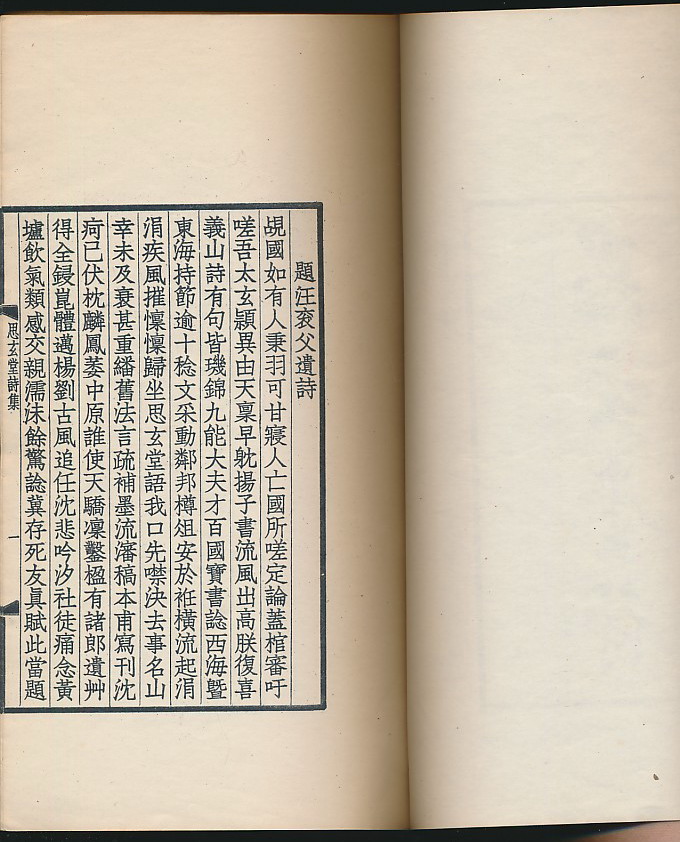 題汪袞父遺詩
覘國如有人秉羽可甘寢人亡國所嗟定論蓋棺審吁
嗟吾太玄穎異由天稟早躭揚子書流風出高朕復喜
義山詩有句皆璣錦九能大夫才百國寶書諗西海曁
東海持節逾十稔文采動鄰邦樽俎安於袵橫流起涓
涓疾風摧懍懍歸坐思玄堂語我口先噤決去事名山
幸未及衰甚重繙舊法言疏補墨流瀋稿本甫寫刊沈
疴已伏枕麟鳳萎中原誰使天驕凜鑿楹有諸郎遺艸
得全鋟崑體邁楊劉古風追任沈悲吟汐社徒痛念黃
壚飮氣類感交親濡沬餘驚諗冀存死友眞賦此當題
思玄堂詩集
一